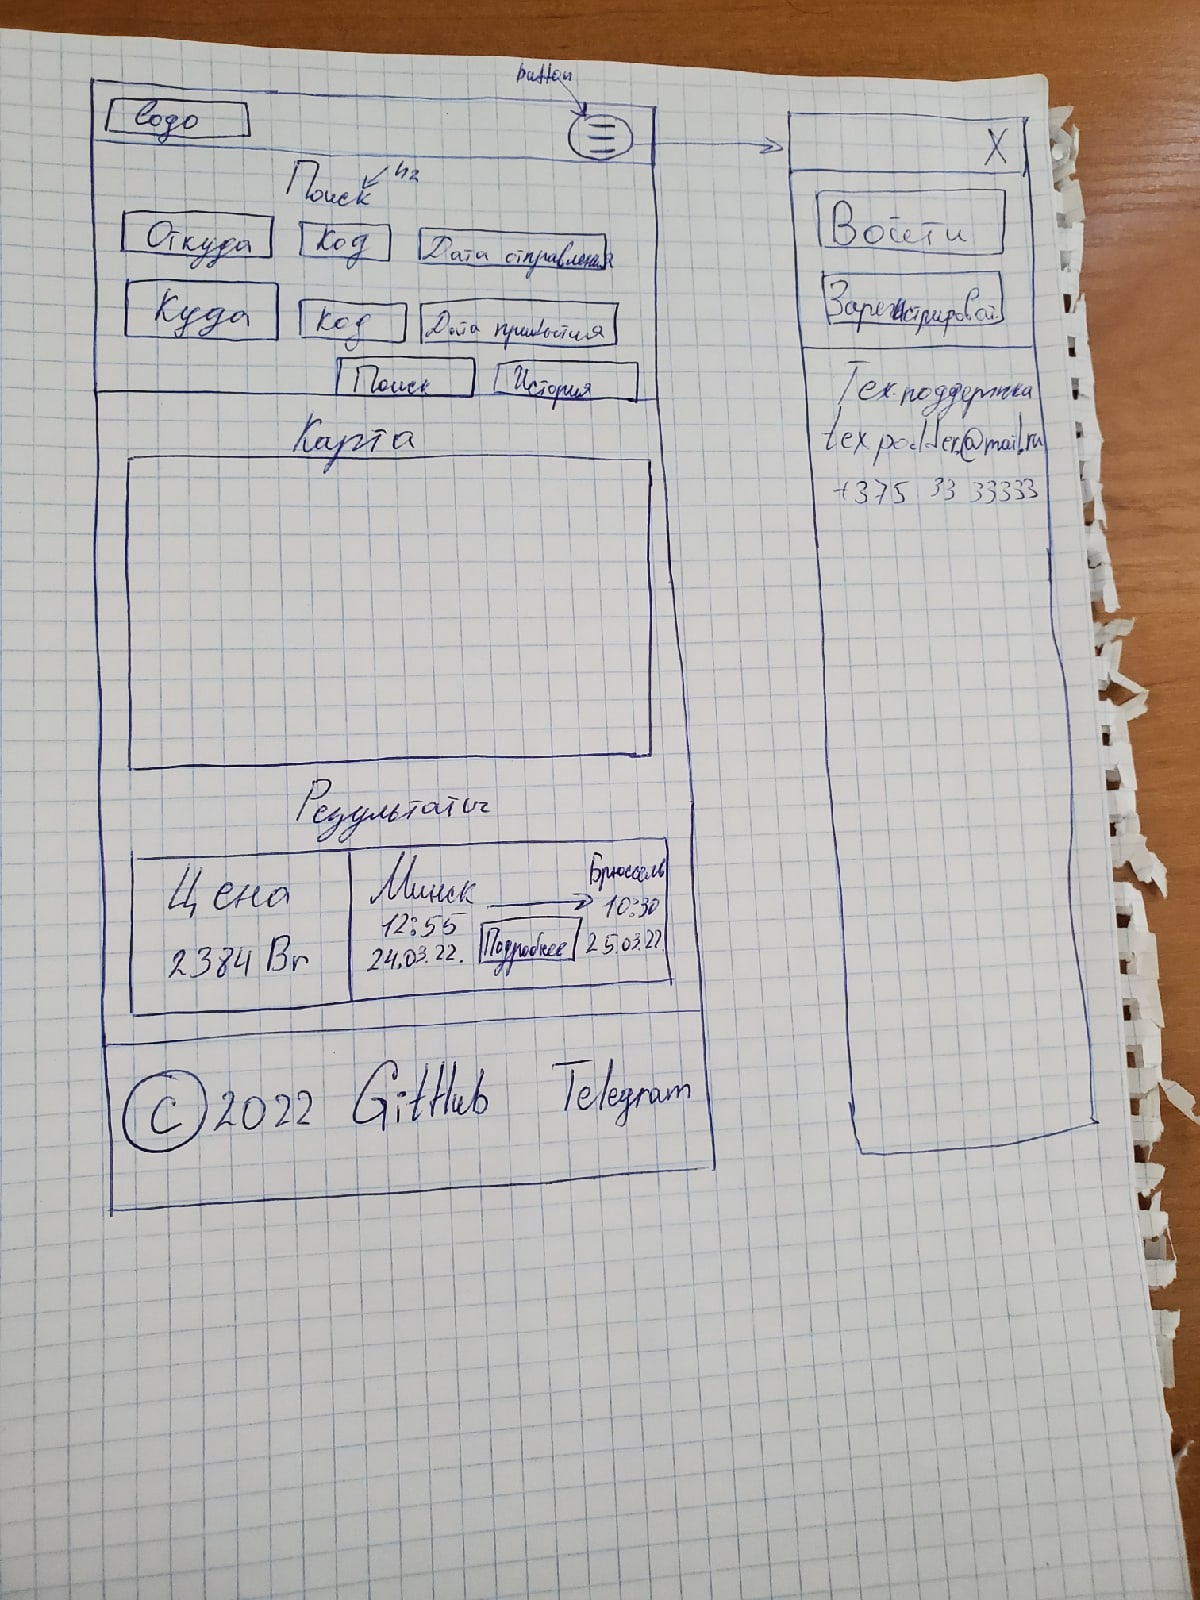 button
Logo
Поиск h2
Откуда Код Дата отправления
Куда Код Дата прибытия
Поиск История
Карта
Результаты
Цена Минск Брюссель
12:55 10:30
2384 Br 24.03.22. Подробнее 25.03.22
© 2022 GitHub Telegram
X
Войти
Зарегистрироват
Тех.поддержка
tex.podder@mail.ru
+375 33 33333